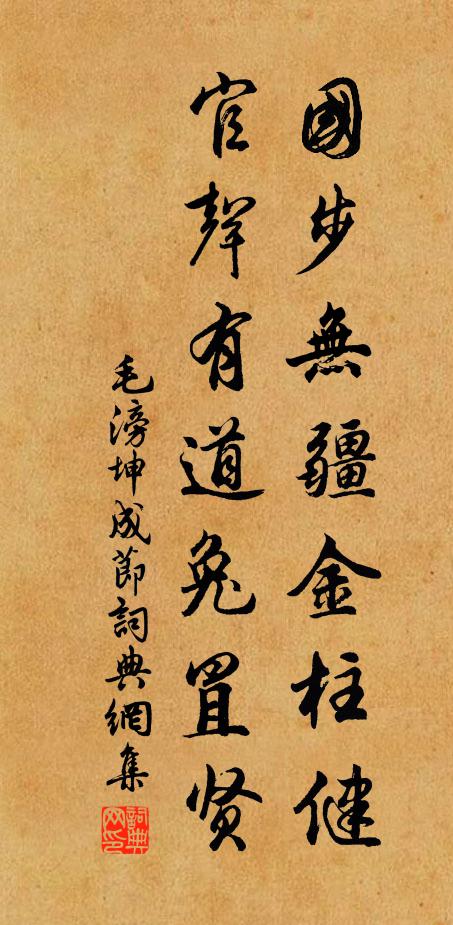 國步無疆金柱健
官聲有道兔罝贤
毛滂坤成節詞典網集
詞典网印